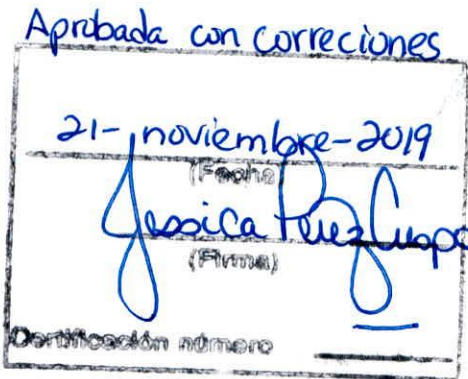 Aprobada con correciones
21-noviembre-2019
(Fecha)
Jessica Pérez
(Firma)
Certificación número